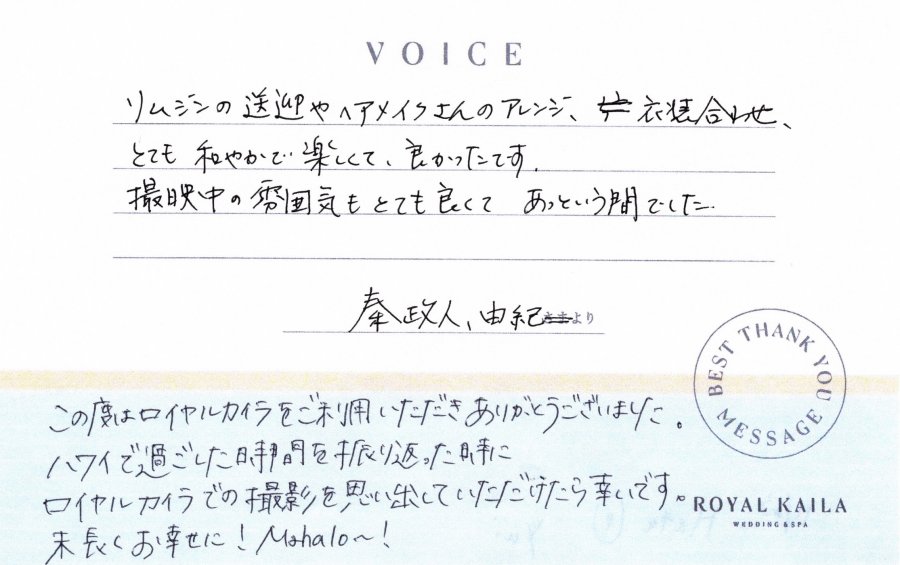 VOICE
リムジンの送迎やヘアメイクさんのアレンジ、衣装合わせ、
とても和やかで楽しくて、良かったです.
撮映中の雰囲気もとても良くて あっという間でした.
秦政人、由紀さまより
BEST THANK YOU MESSAGE
この度はロイヤルカイラをご利用いただきありがとうございました。
ハワイで過ごした時間を振り返った時に
ロイヤルカイラでの撮影を思い出していただけたら幸いです。
末長くお幸せに!Mahalo~!
ROYAL KAILA
WEDDING & SPA